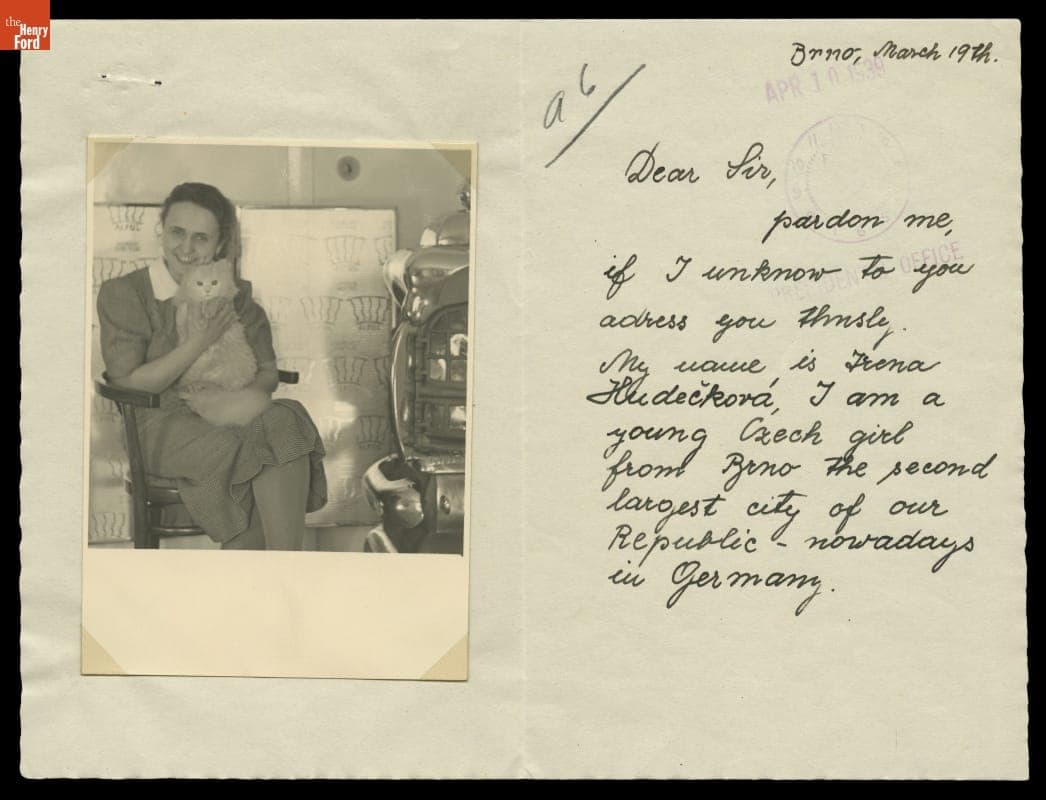 the
Henry
Ford
Brno, March 19th.
APR 10 1939
a 6/
Dear Sir,
pardon me,
if I unknow to you
adress you thusly.
My name is Irena
Hudečková, I am a
young Czech girl
from Brno the second
largest city of our
Republic – nowadays
in Germany.
OFFICE